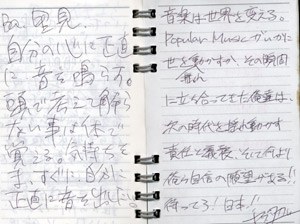 自分の心に正直
に音を鳴らす。
頭で考えて解ら
ない事は体で
覚える。気持ちを
すぐに自分に
正直に音を出した。
音楽は世界を変える。
Popular Music がいかに
世を動かすか、その瞬間
に立ち会ってきた俺達は、
次の時代を揺れ動かす
責任と義務、そして何より
俺ら自信の願望がある!!
待ってろ!日本!!